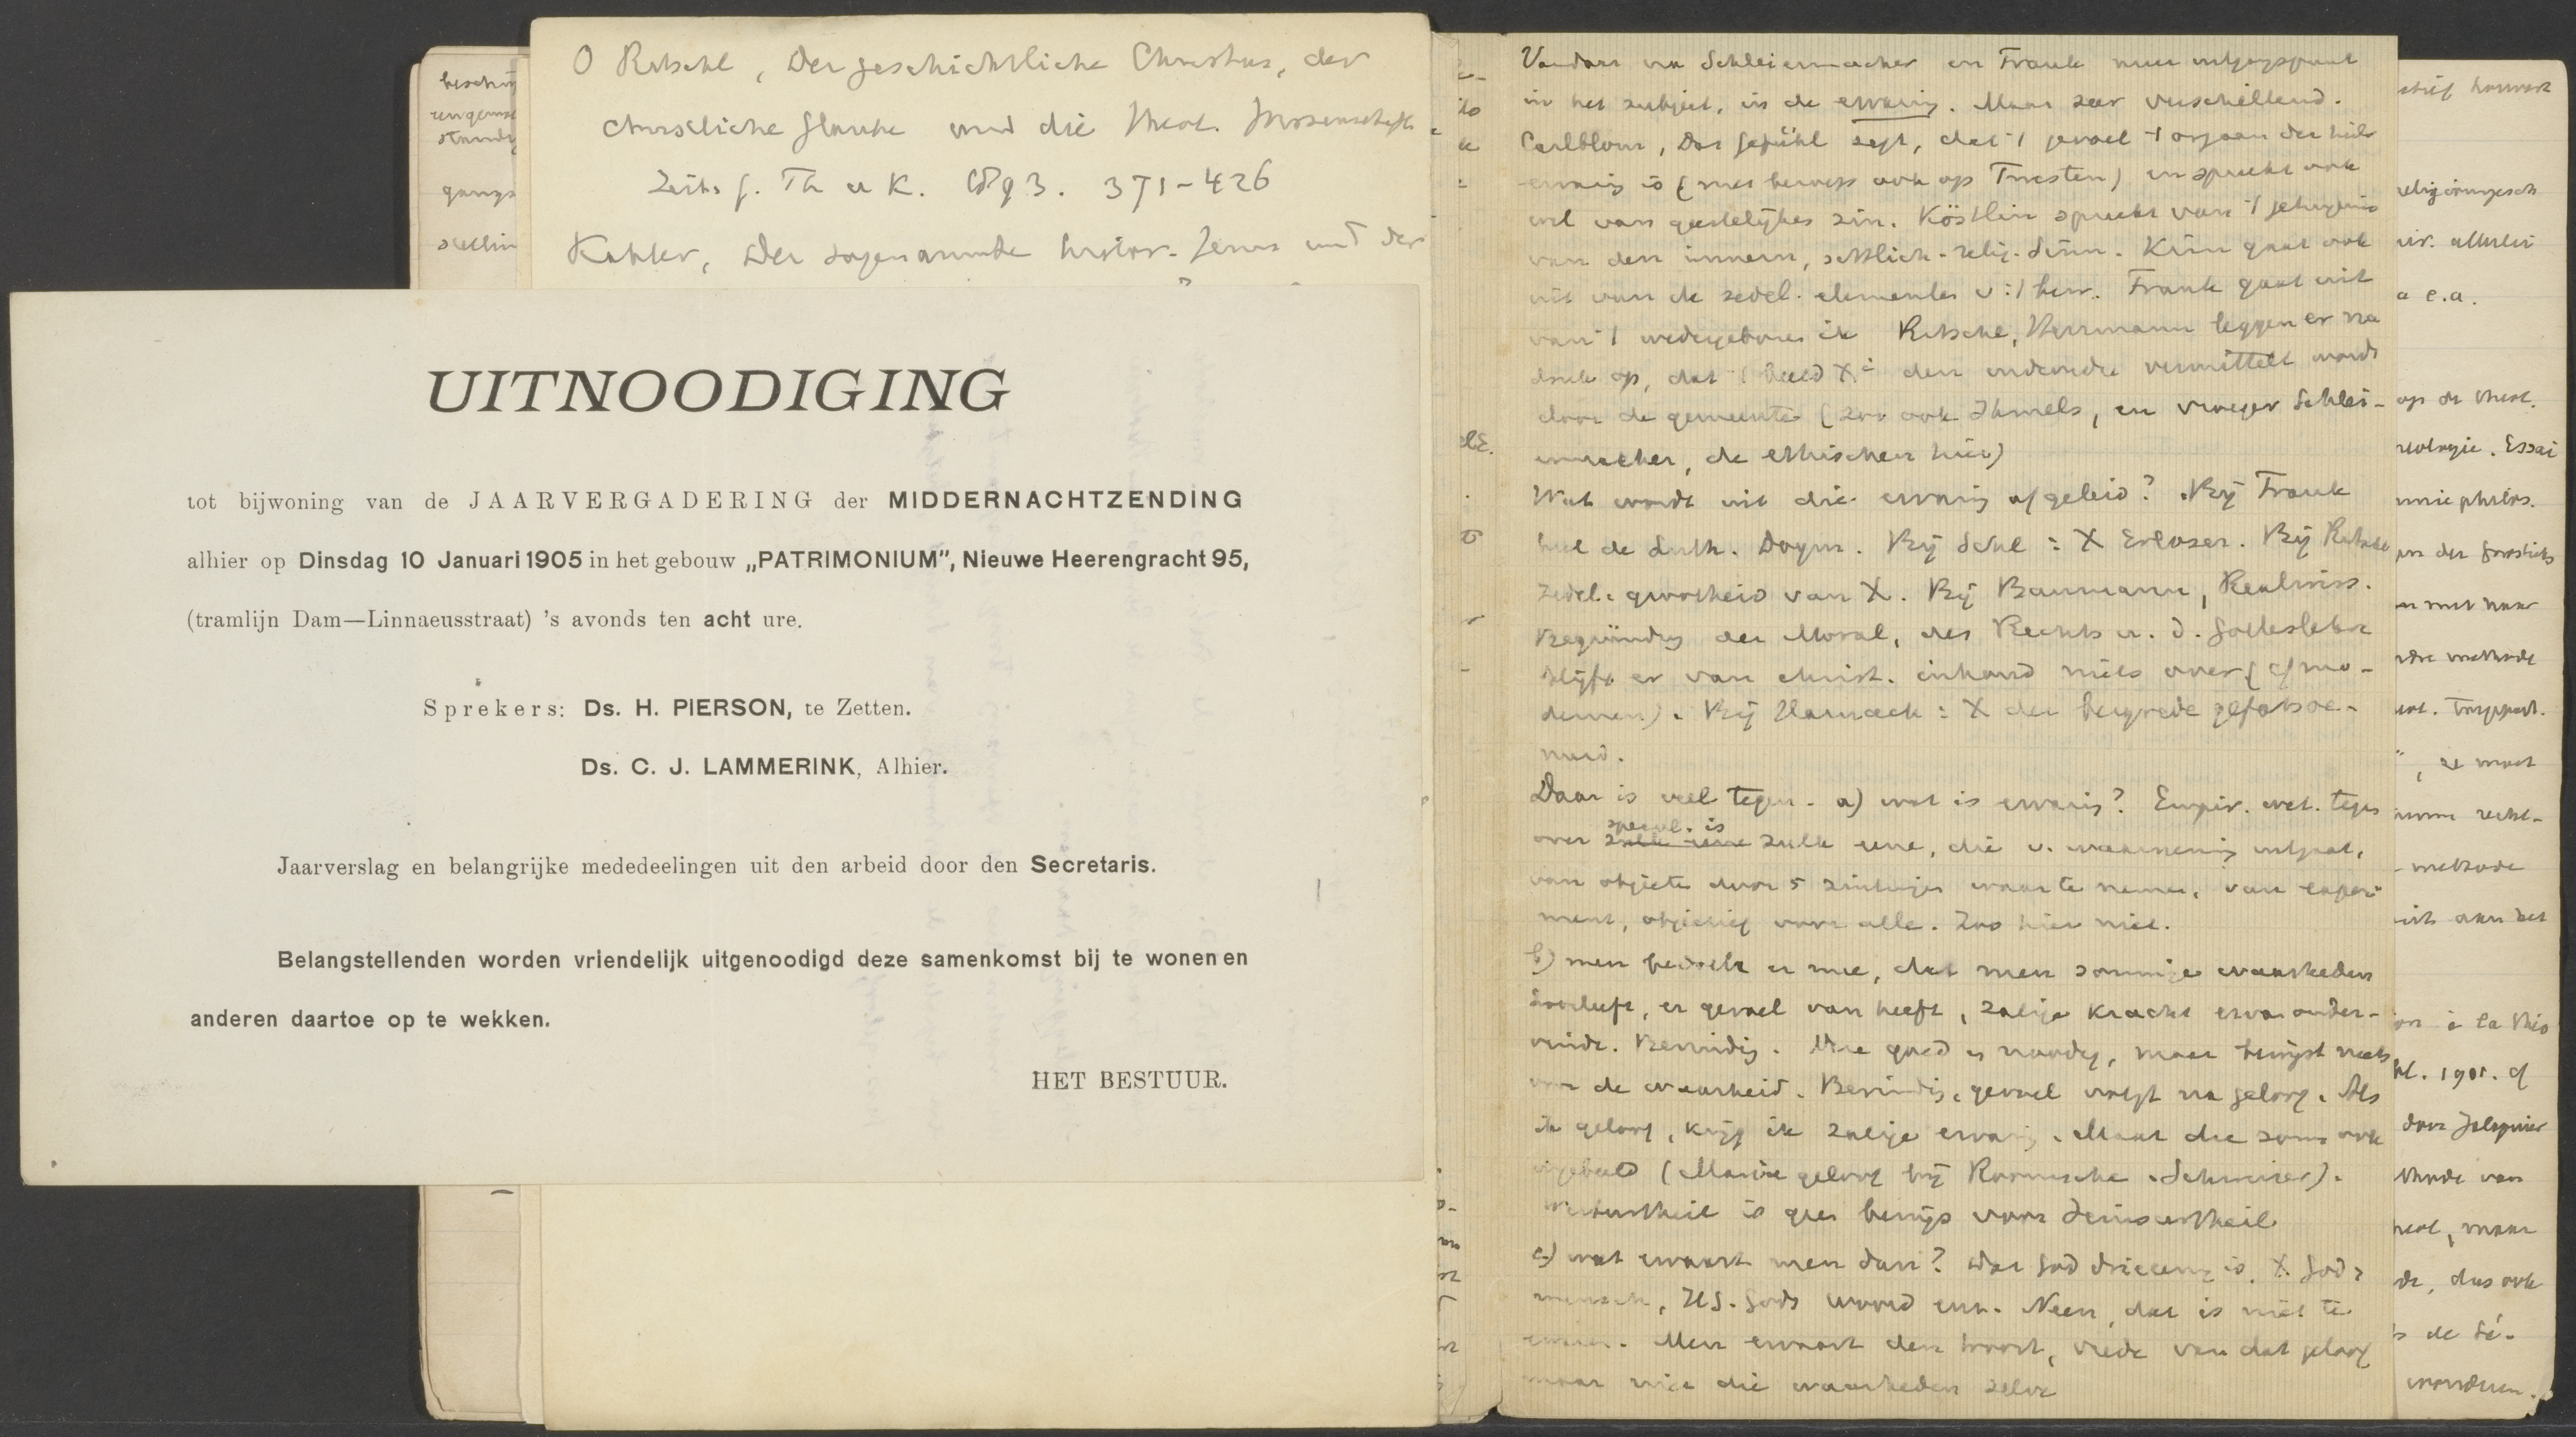 O Ritschl, Der geschichtliche Christus, der
christliche Glaube und die theol. Wissenschaft
Zeits f. Th u K. 1893. 371-426
Kähler, Der sogenannte histor. Jesus und der
UITNOODIGING
tot bijwoning van de JAARVERGADERING der MIDDERNACHTZENDING
alhier op Dinsdag 10 Januari 1905 in het gebouw „PATRIMONIUM”, Nieuwe Heerengracht 95,
(tramlijn Dam—Linnaeusstraat) 's avonds ten acht ure.
Sprekers: Ds. H. PIERSON, te Zetten.
Ds. C. J. LAMMERINK, Alhier.
Jaarverslag en belangrijke mededeelingen uit den arbeid door den Secretaris.
Belangstellenden worden vriendelijk uitgenoodigd deze samenkomst bij te wonen en
anderen daartoe op te wekken.
HET BESTUUR.
Vandaar na Schleiermacher en Frank meer uitgangspunt
in het subject, in de ervaring. Maar zeer verschillend.
Carlblom, Das Gefühl zegt, dat 't gevoel 't orgaan der heils
ervaring is (met beroep ook op Twesten) en spreekt ook
wel van geestelijken zin. Köstlin spreekt van 't getuigenis
van den innern, sittlich-relig. Sinn. gaat ook
uit van de zedel. elementen v. 't bew. Frank gaat uit
van 't wedergeboren ik Ritschl, Herrmann leggen er na
druk op, dat 't beeld Xi den individu vermittelt wordt
door de gemeente (zoo ook Ihmels, en vroeger Schlei-
ermacher, de ethischen hier)
Wat wordt uit die ervaring afgeleid? Bij Frank
heel de Luth. Dogm. Bij Schl: X Erlöser. Bij Ritschl
zedel. grootheid van X. Bij Baumann, Realwiss.
Begründg der Moral, des Rechts u. d. Gotteslehre
blijft er van christ. inhoud niets over (cf mo-
dernen). Bij Harnack: X der bergrede gefatsoe-
neerd.
Daar is veel tegen. a) wat is ervaring? Empir. wet. tegen
over specul. is zulk eene, die v. waarneming uitgaat,
van objecten door 5 zintuigen waar te nemen, van experi
ment, objectief voor alle. Zoo hier niet.
b) men bedoelt er mee, dat men sommige waarheden
doorleeft, er gevoel van heeft, zalige kracht ervan onder-
vindt. Bevinding. Zeer goed en noodig, maar bewijst niets
voor de waarheid. Bevindig, gevoel volgt na geloof. Als
ik geloof, krijg ik zalige ervaring. Maar die soms ook
ingebeeld (Maria geloof bij Roomsche. ).
Werturtheil is geen bewijs voor Seinsurtheil
c) wat ervaart men dan? Dat God drieeenig is, X God-
mensch, HS. Gods woord enz. Neen, dat is niet te
ervaren. Men ervaart den troost, vrede van dat geloof
maar niet die waarheden zelve